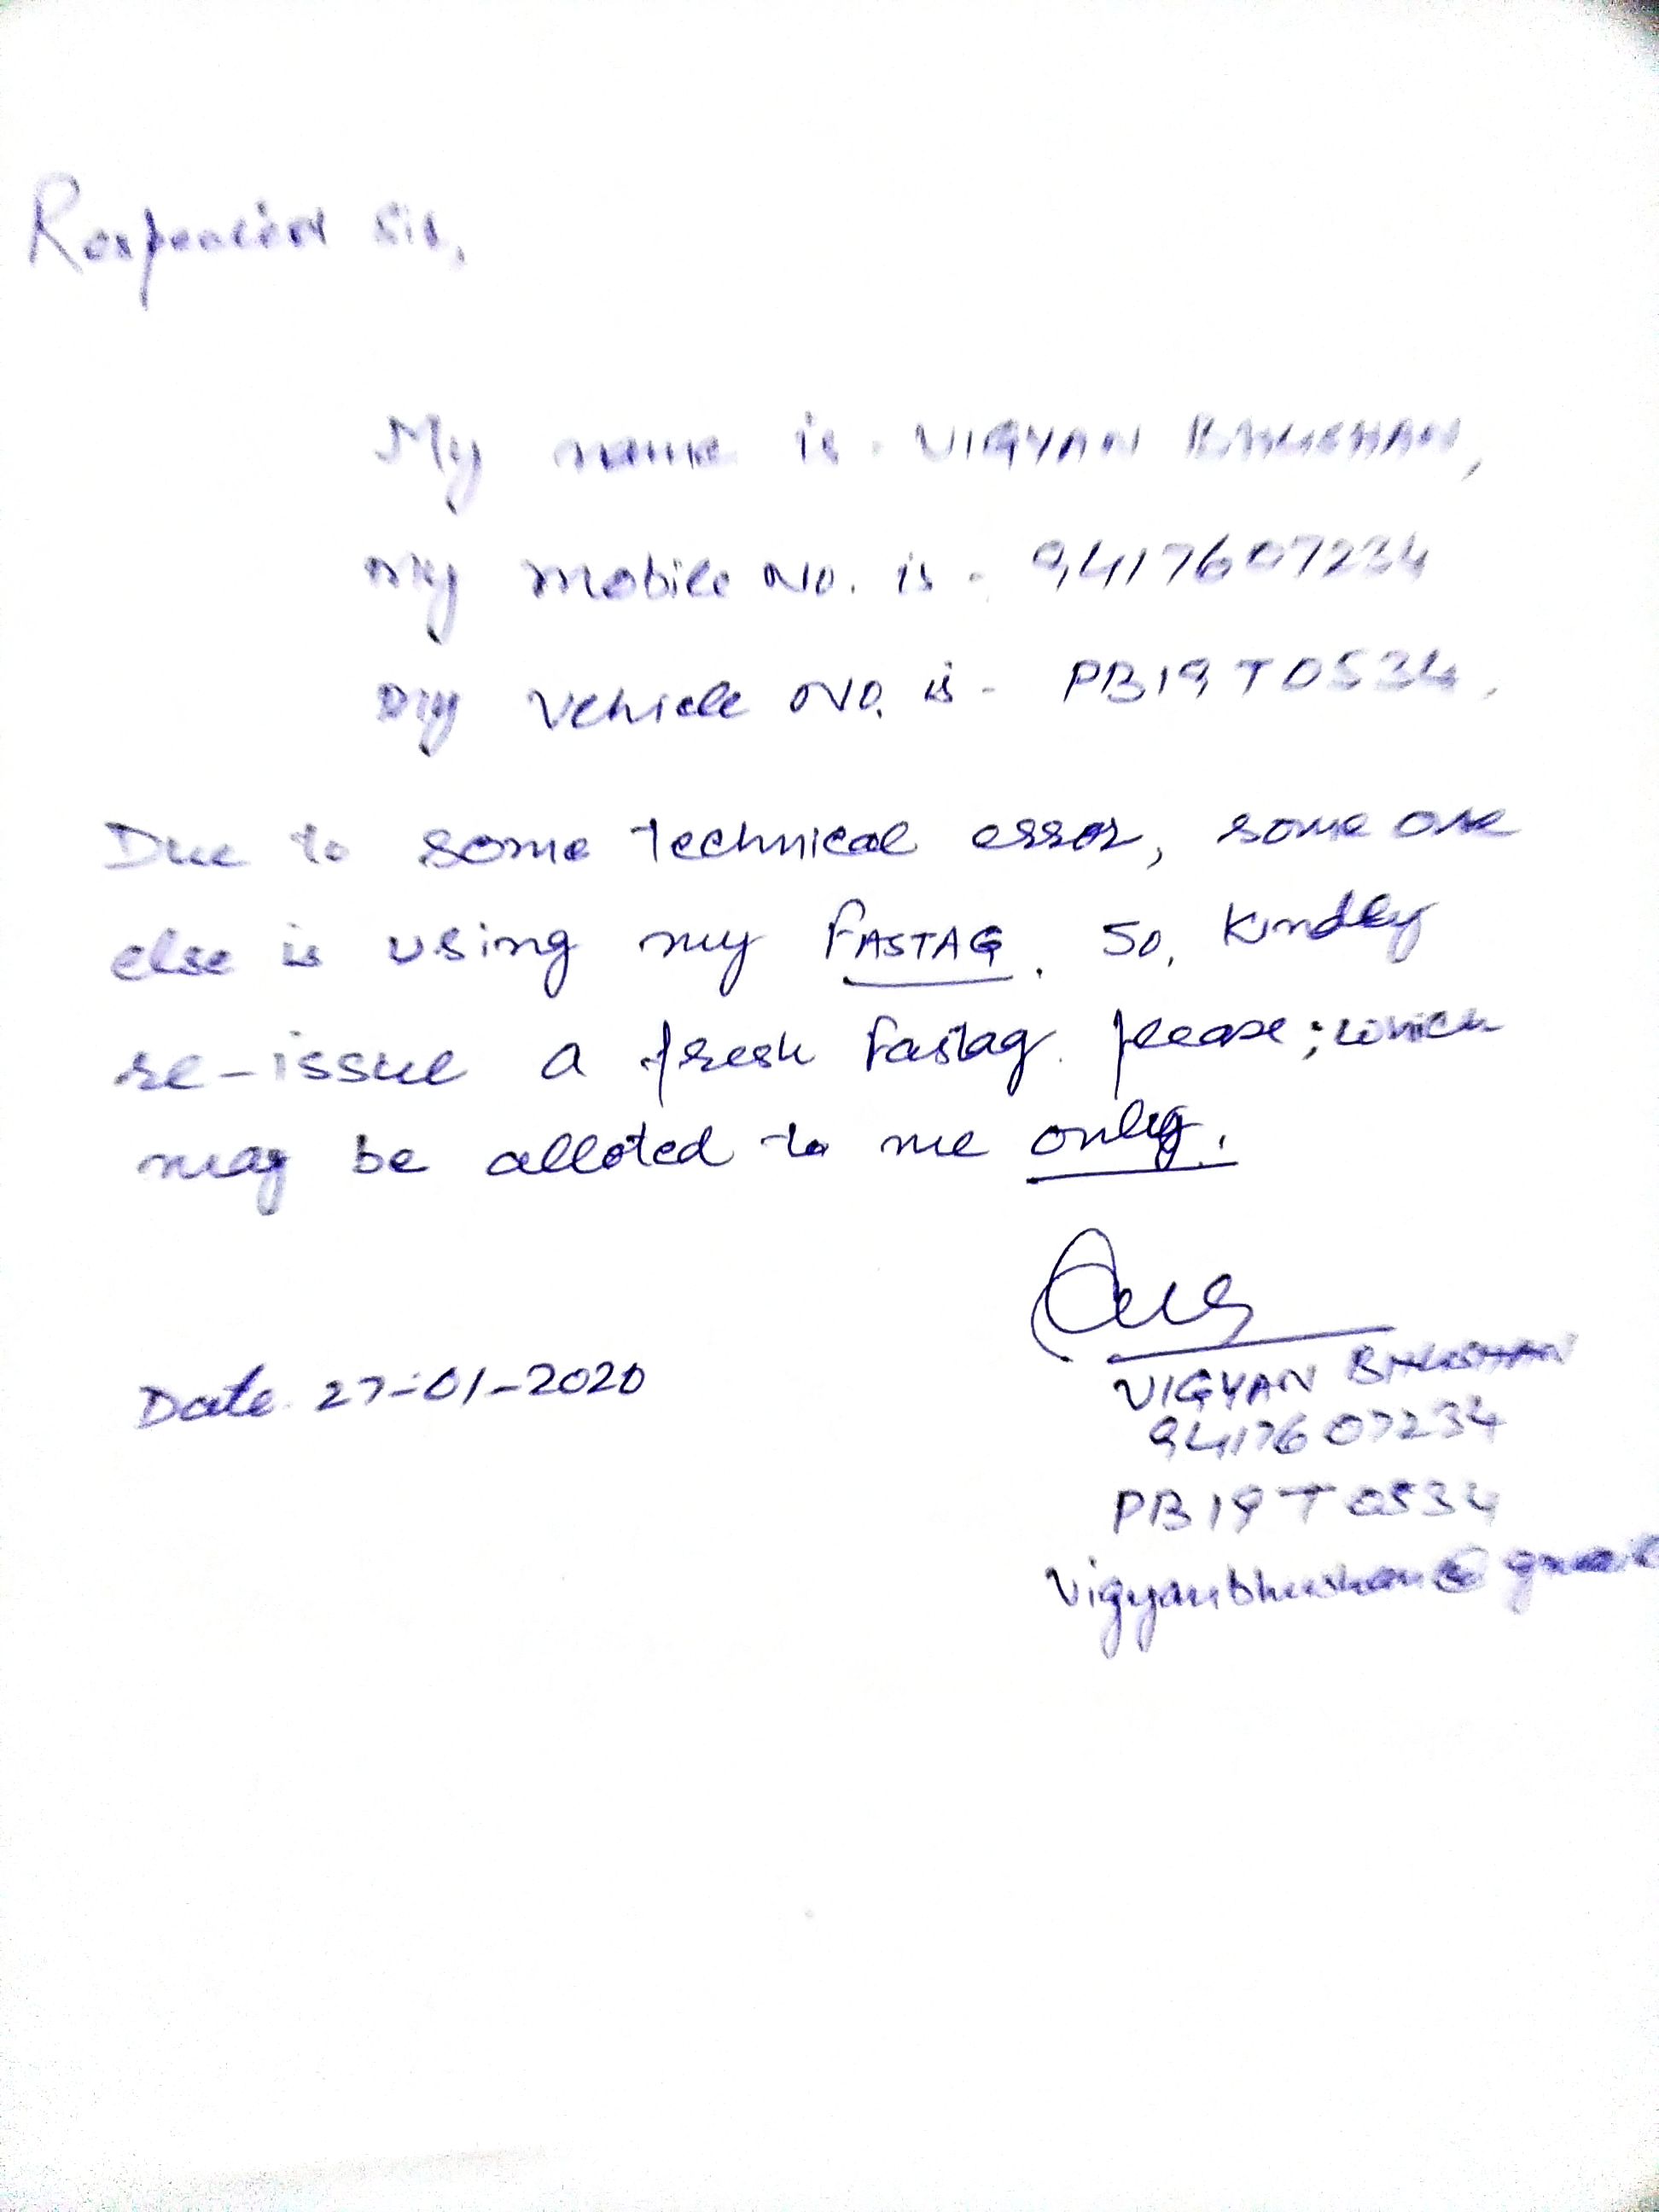 Respected Sir,
My name is - VIGYAN BHUSHAN,
My mobile No. is - 9417607234
My Vehicle No. is - PB19T0534.
Due to some technical error, some one
else is using my FASTAG. So, Kindly
re-issue a fresh Fastag please; which
may be alloted to me only.
VIGYAN BHUSHAN
Date 27-01-2020
9417607234
PB19T0534
vigyanbhushan@gmail